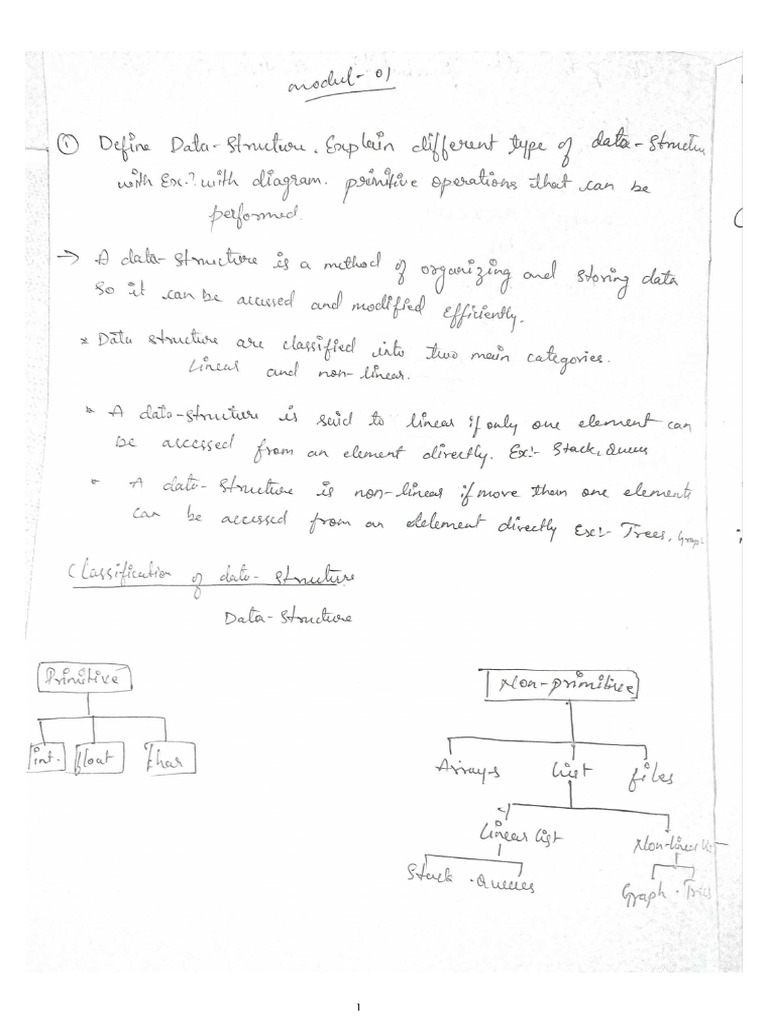 modul-01
① Define Data-Structure. Explain different type of data-Structu
with Ex.? with diagram. primitive operations that can be
performed.
→ A data-structure is a method of organizing and storing data
so it can be accessed and modified efficiently.
* Data structure are classified into two main categories.
Linear and non-linear.
* A data-structure is said to linear if only one element can
be accessed from an element directly. Ex:- Stack, Queue
* A data-structure is non-linear if more than one elements
can be accessed from an delement directly Ex:- Trees, Graph
Classification of data-structure
Data-structure
Primitive
Non-primitive
int. float char
Arrays List files
Linear List Non-linear Lis
Stack . Queues Graph . Trees
1